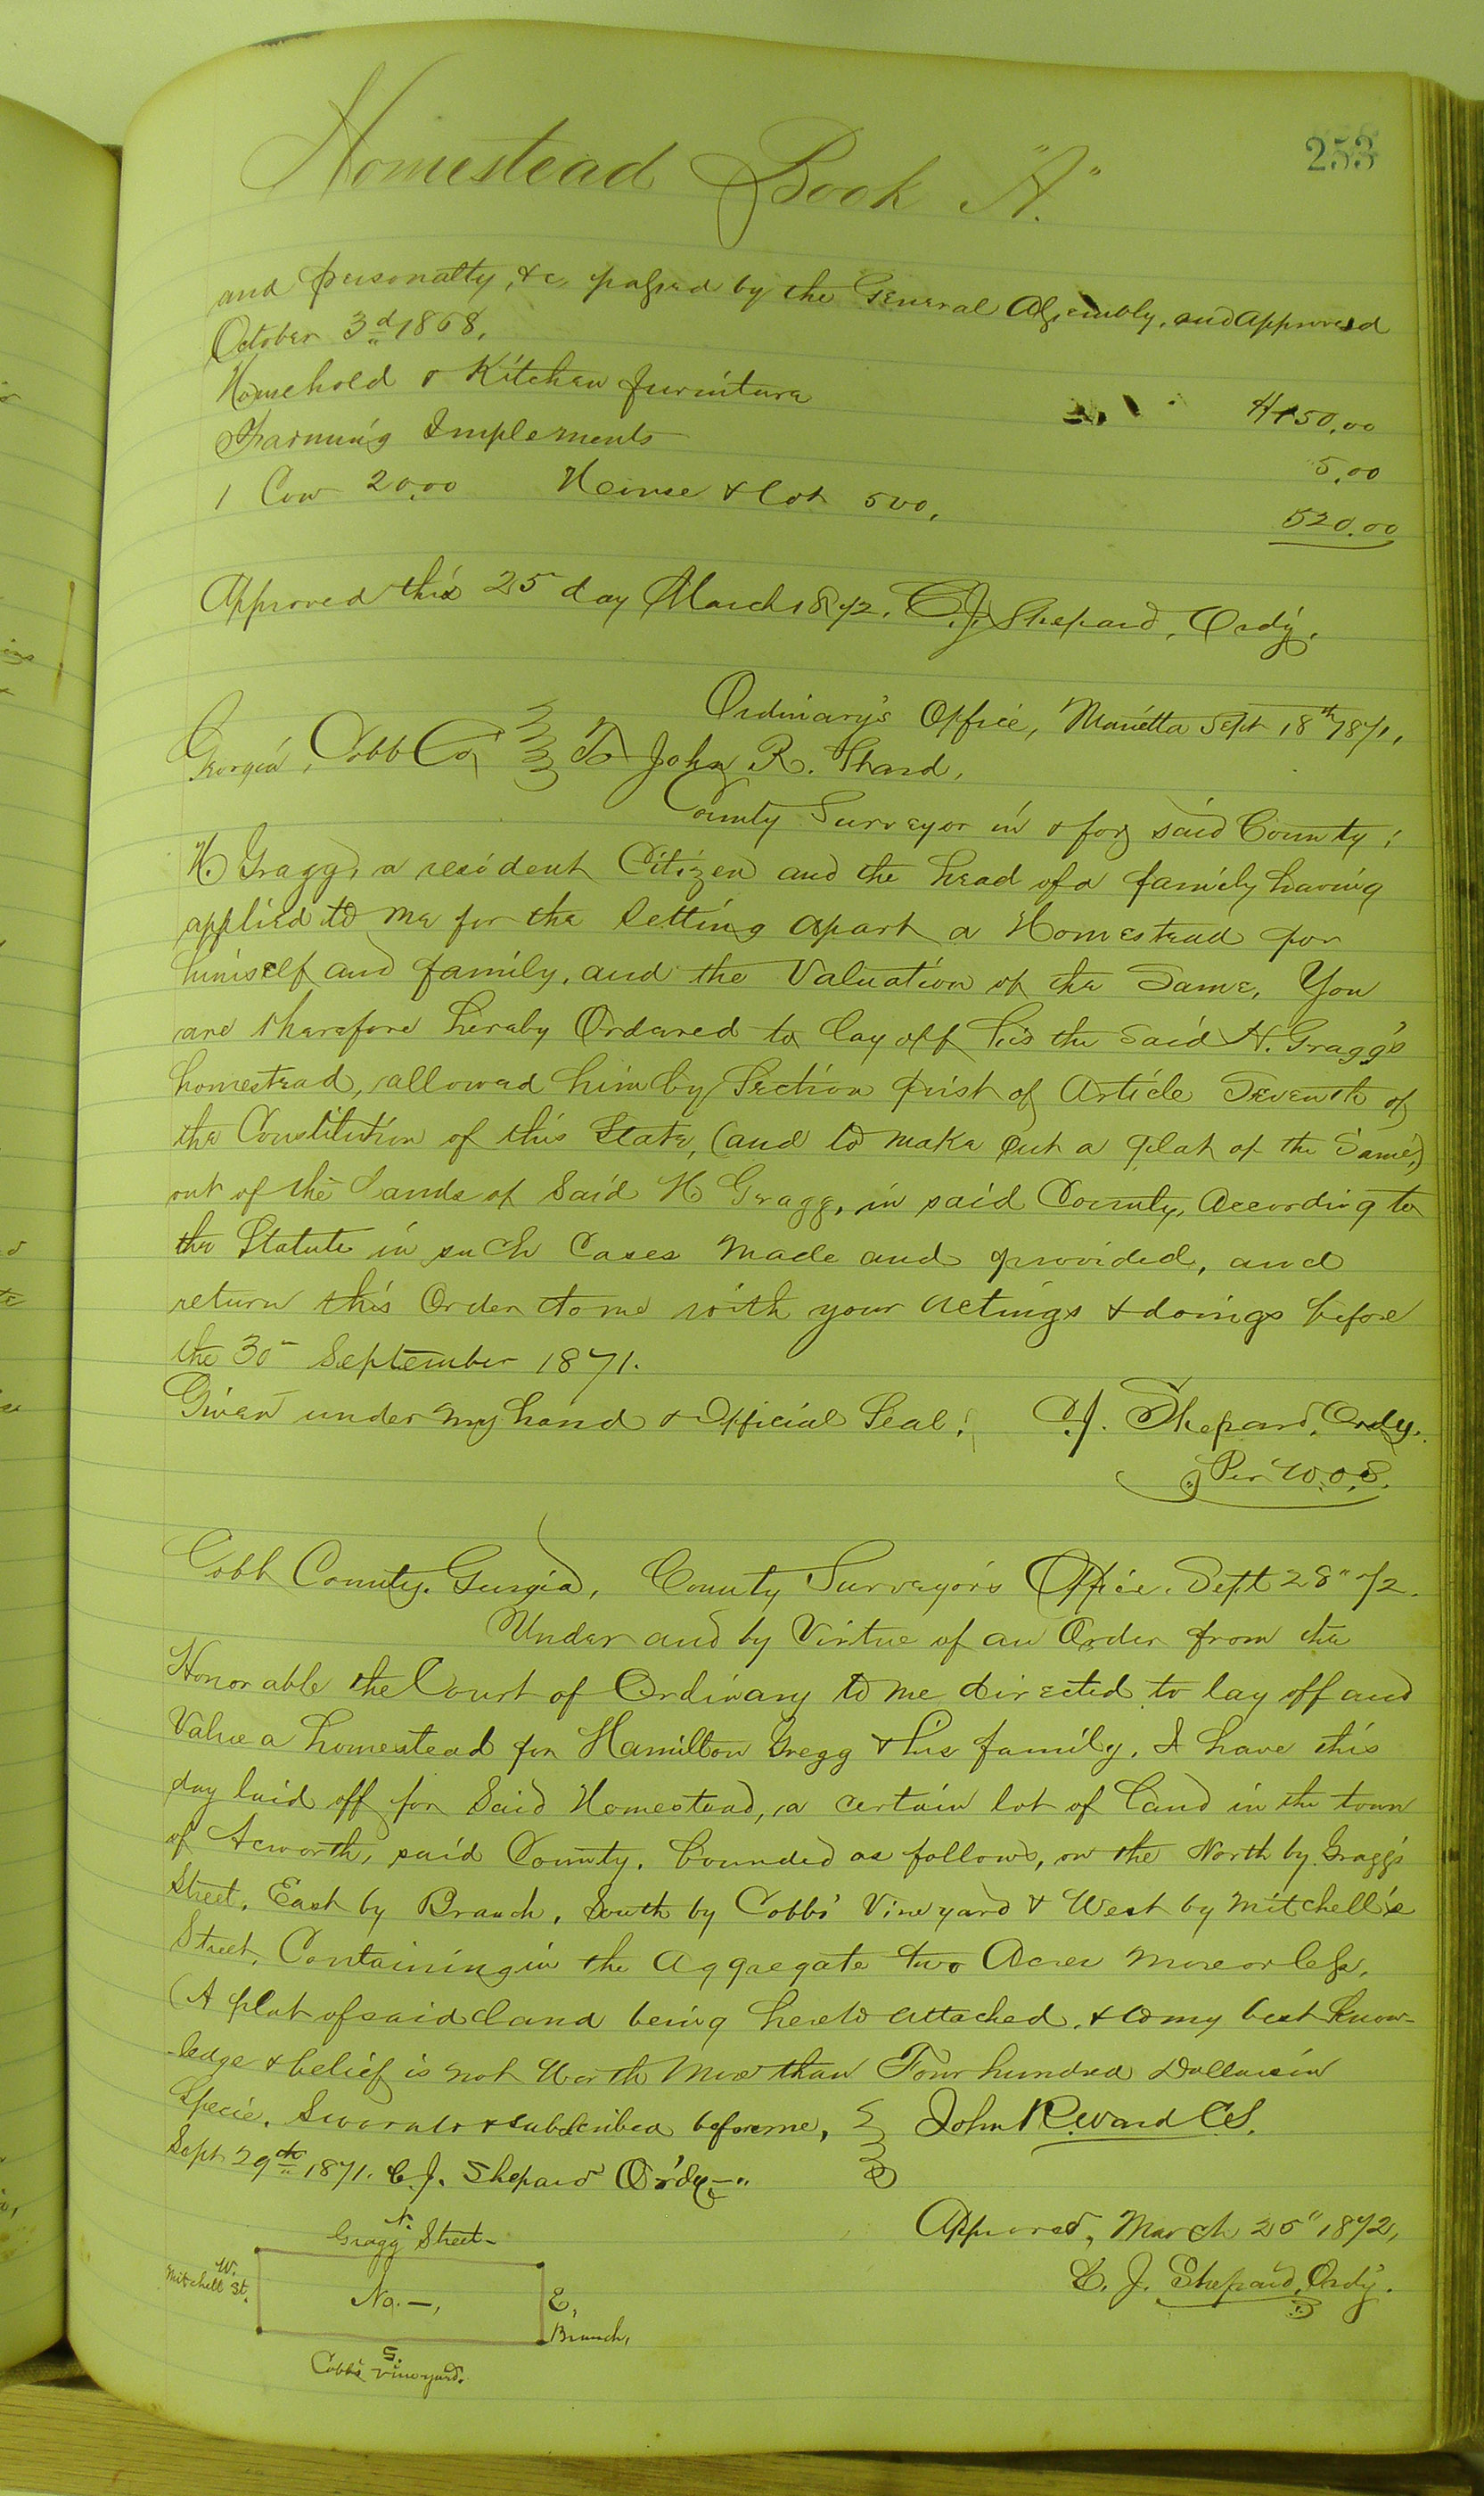 253
Homestead Book "A."
and personalty, &c, passed by the General Assembly, and Approved
October 3d 1868.
Household & Kitchen furniture $150.00
Farming Implements 5.00
1 Cow 20.00 House & lot 500. 520.00
Approved this 25 day March 1872. C. J. Shepard, Ordy.
Ordinary's Office, Marietta Sept 18th 1871.
Georgia, Cobb Co To John R. Ward,
County Surveyor in & for said County;
H. Gragg, a resident Citizen and the head of a family having
applied to me for the Setting apart a Homestead for
himself and family, and the Valuation of the Same, You
are therefore hereby Ordered to lay off his the said H. Gragg's
homestead, allowed him by Section first of Article Seventh of
the Constitution of this State, (and to make out a plat of the Same,)
out of the Lands of Said H. Gragg, in said County, According to
the Statute in such Cases made and provided, and
return this Order to me with your actings & doings before
the 30 September 1871.
Given under my hand & Official Seal. C. J. Shepard, Ordy.
Per W.O.S.
Cobb County, Georgia, County Surveyor's Office, Sept 28" 72.
Under and by Virtue of an Order from the
Honorable the Court of Ordinary to me directed to lay off and
Value a homestead for Hamilton Gregg & his family, I have this
day laid off for Said Homestead, a certain lot of Land in the town
of Acworth, said County, bounded as follows, on the North by Gragg's
Street, East by Branch, South by Cobbs' Vineyard & West by Mitchell's
Street, Containing in the Aggregate two Acres more or less.
(A plat of said land being hereto attached, & to my best know-
-ledge & belief is not Worth More than Four hundred Dollars in
Specie. Sworn to & subscribed before me, John R. Ward C.S.
Sept 29th 1871. C. J. Shepard Ordy
Approved, March 25" 1872,
C. J. Shepard, Ordy.
N.
Gragg Street
W.
Mitchell St.
No. —,
E,
Branch,
S.
Cobb's Vineyard.